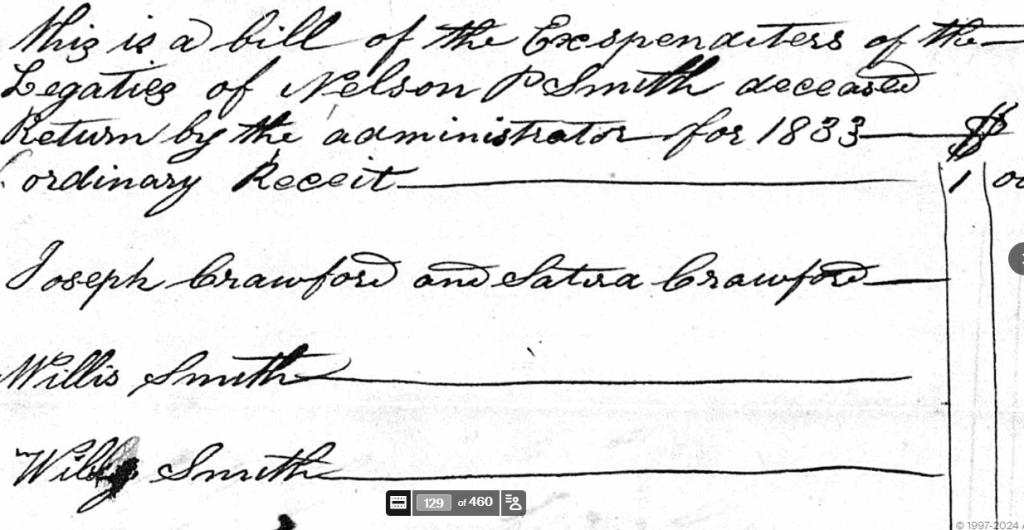 This is a bill of the Exspenditers of the
Legaties of Nelson P Smith deceased
Return by the administrator for 1833 $
ordinary Receit 1 00
Joseph Crawford and Satira Crawford
Willis Smith
Smith
129 of 460
© 1997-2024